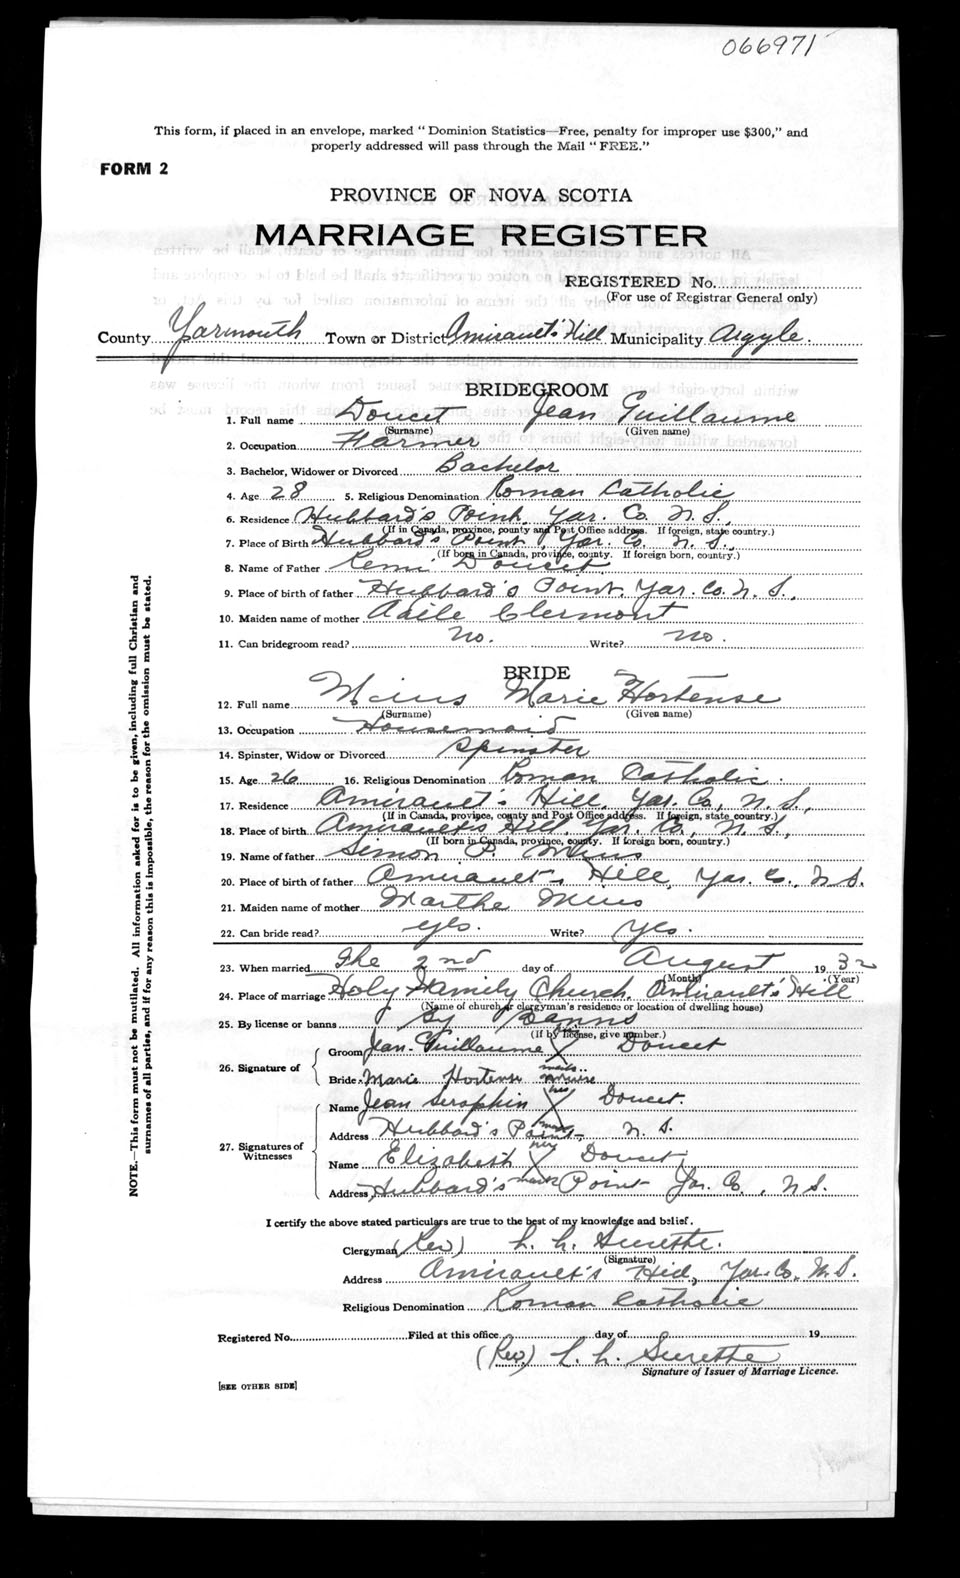 066971
This form, if placed in an envelope, marked "Dominion Statistics—Free, penalty for improper use $300," and
properly addressed will pass through the Mail "FREE."
FORM 2
PROVINCE OF NOVA SCOTIA
MARRIAGE REGISTER
REGISTERED No.
(For use of Registrar General only)
County Yarmouth Town or District Amirault's Hill Municipality Argyle.
BRIDEGROOM
1. Full name Doucet Jean Guillaume
(Surname) (Given name)
2. Occupation Farmer
3. Bachelor, Widower or Divorced Bachelor
4. Age 28 5. Religious Denomination Roman Catholic
6. Residence Hubbard's Point, Yar. Co. N.S.,
(If in Canada, province, county and Post Office address. If foreign, state country.)
7. Place of Birth Hubbard's Point, Yar. Co. N.S.,
(If born in Canada, province, county. If foreign born, country.)
8. Name of Father Remi Doucet
9. Place of birth of father Hubbard's Point, Yar. Co. N.S.,
10. Maiden name of mother Clermont
11. Can bridegroom read? No. Write? No.
BRIDE
12. Full name Meius Marie Hortense
(Surname) (Given name)
13. Occupation Housemaid
14. Spinster, Widow or Divorced Spinster
15. Age 26 16. Religious Denomination Roman Catholic.
17. Residence Amirault's Hill, Yar. Co., N.S.,
(If in Canada, province, county and Post Office address. If foreign, state country.)
18. Place of birth Amirault's Hill, Yar. Co., N.S.,
(If born in Canada, province, county. If foreign born, country.)
19. Name of father Simon P. Meius
20. Place of birth of father Amirault's Hill, Yar. Co., N.S.
21. Maiden name of mother Marthe Meius
22. Can bride read? Yes. Write? Yes.
23. When married The 2nd day of August 1932
(Month) (Year)
24. Place of marriage Holy Family Church, Amirault's Hill
(Name of church or clergyman's residence or location of dwelling house)
25. By license or banns By Banns
(If by license, give number.)
26. Signature of
Groom Jean-Guillaume X Doucet
mark
Bride Marie Hortense Meuse
his
Name Jean Seraphin X Doucet.
mark
27. Signatures of Witnesses
Address Hubbard's Point N.S.
her
Name Elizabeth X Doucet,
mark
Address Hubbard's Point Yar. Co., N.S.
I certify the above stated particulars are true to the best of my knowledge and belief.
Clergyman (Rev) L. h. Surette.
(Signature)
Address Amirault's Hill, Yar. Co. N.S.
Religious Denomination Roman Catholic
Registered No. Filed at this office day of 19
(Rev.) L. h. Surette
Signature of Issuer of Marriage Licence.
[SEE OTHER SIDE]
NOTE.—This form must not be mutilated. All information asked for is to be given, including full Christian and
surnames of all parties, and if for any reason this is impossible, the reason for the omission must be stated.